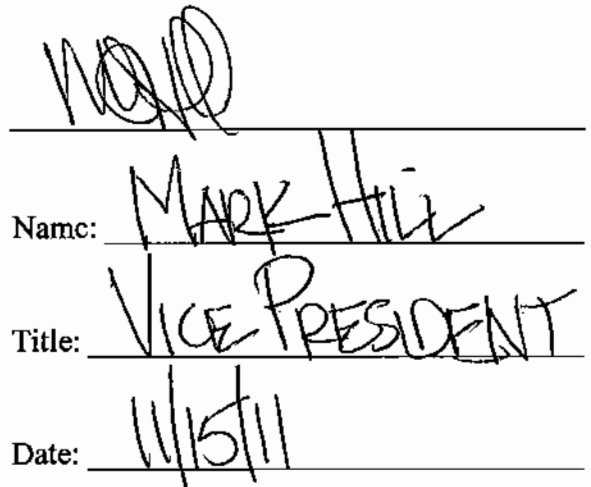 Name: MARK HILL
Title: VICE PRESIDENT
Date: 11/15/11